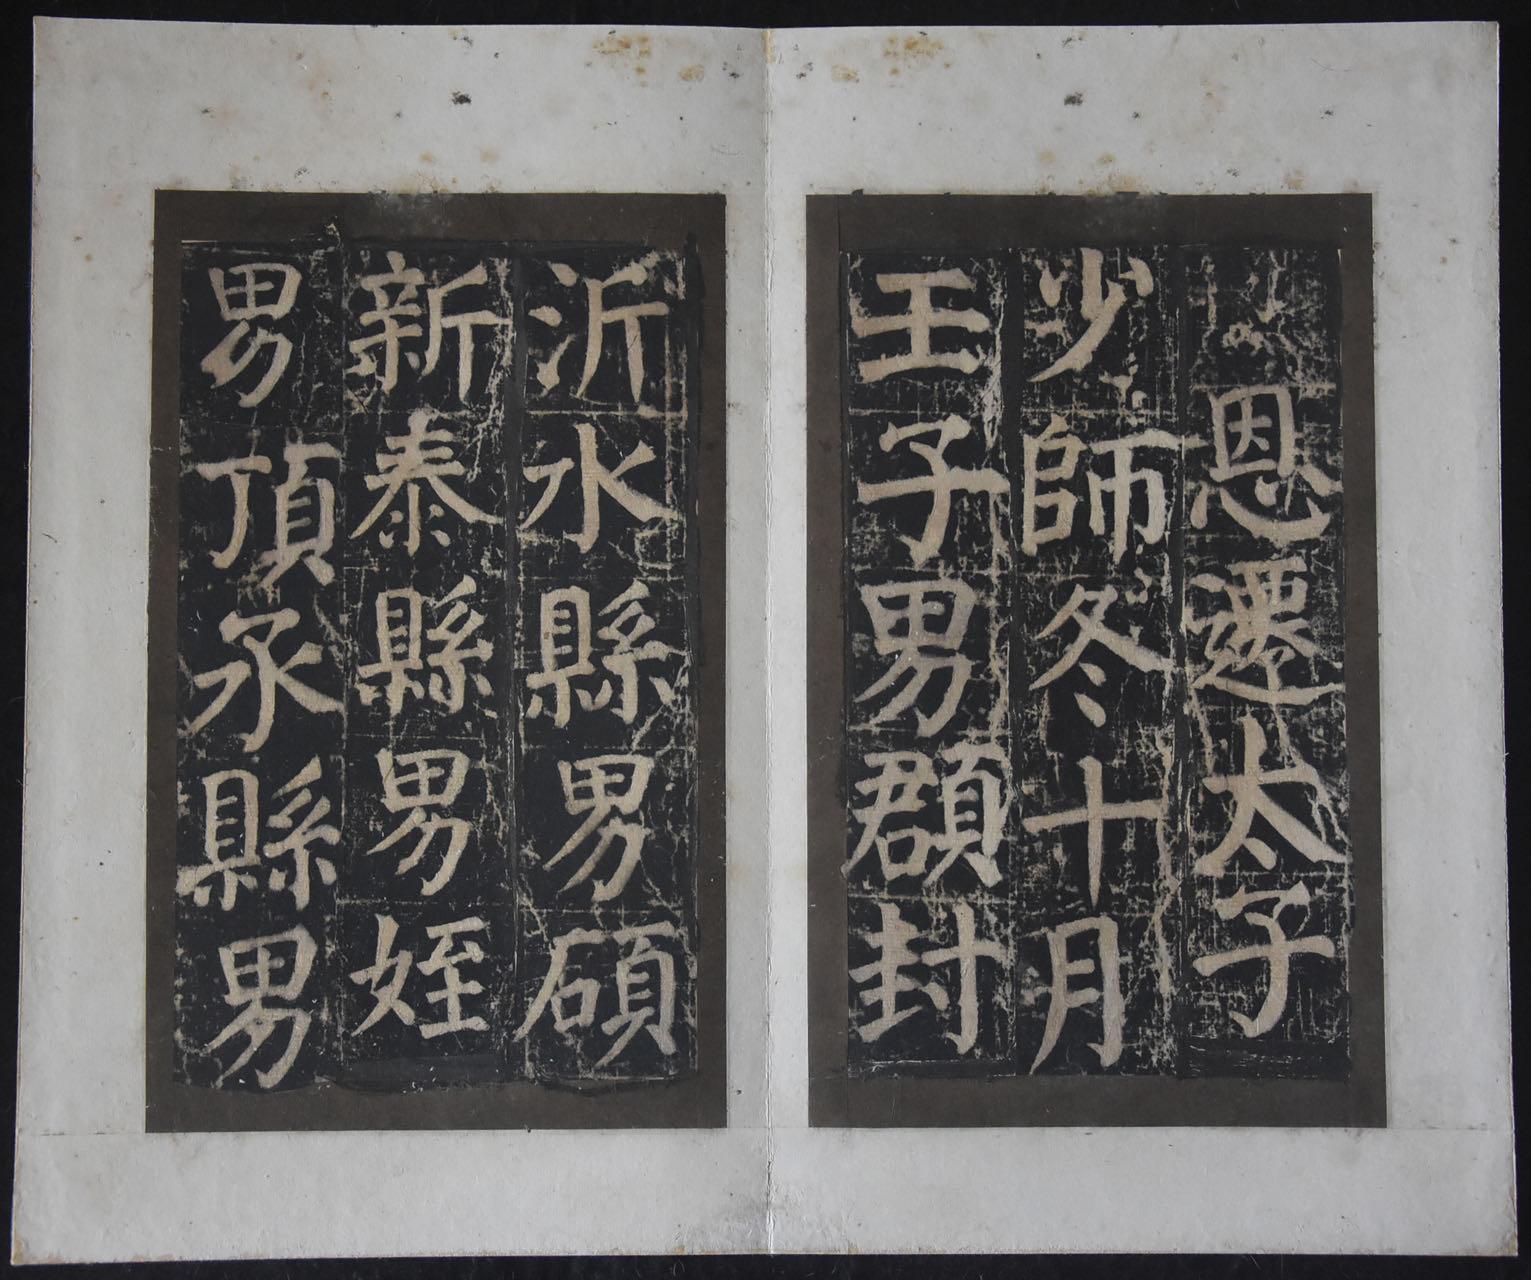 恩遷太子
少師冬十月
壬子男頵封
沂水縣男碩
新泰縣男姪
男頂承縣男